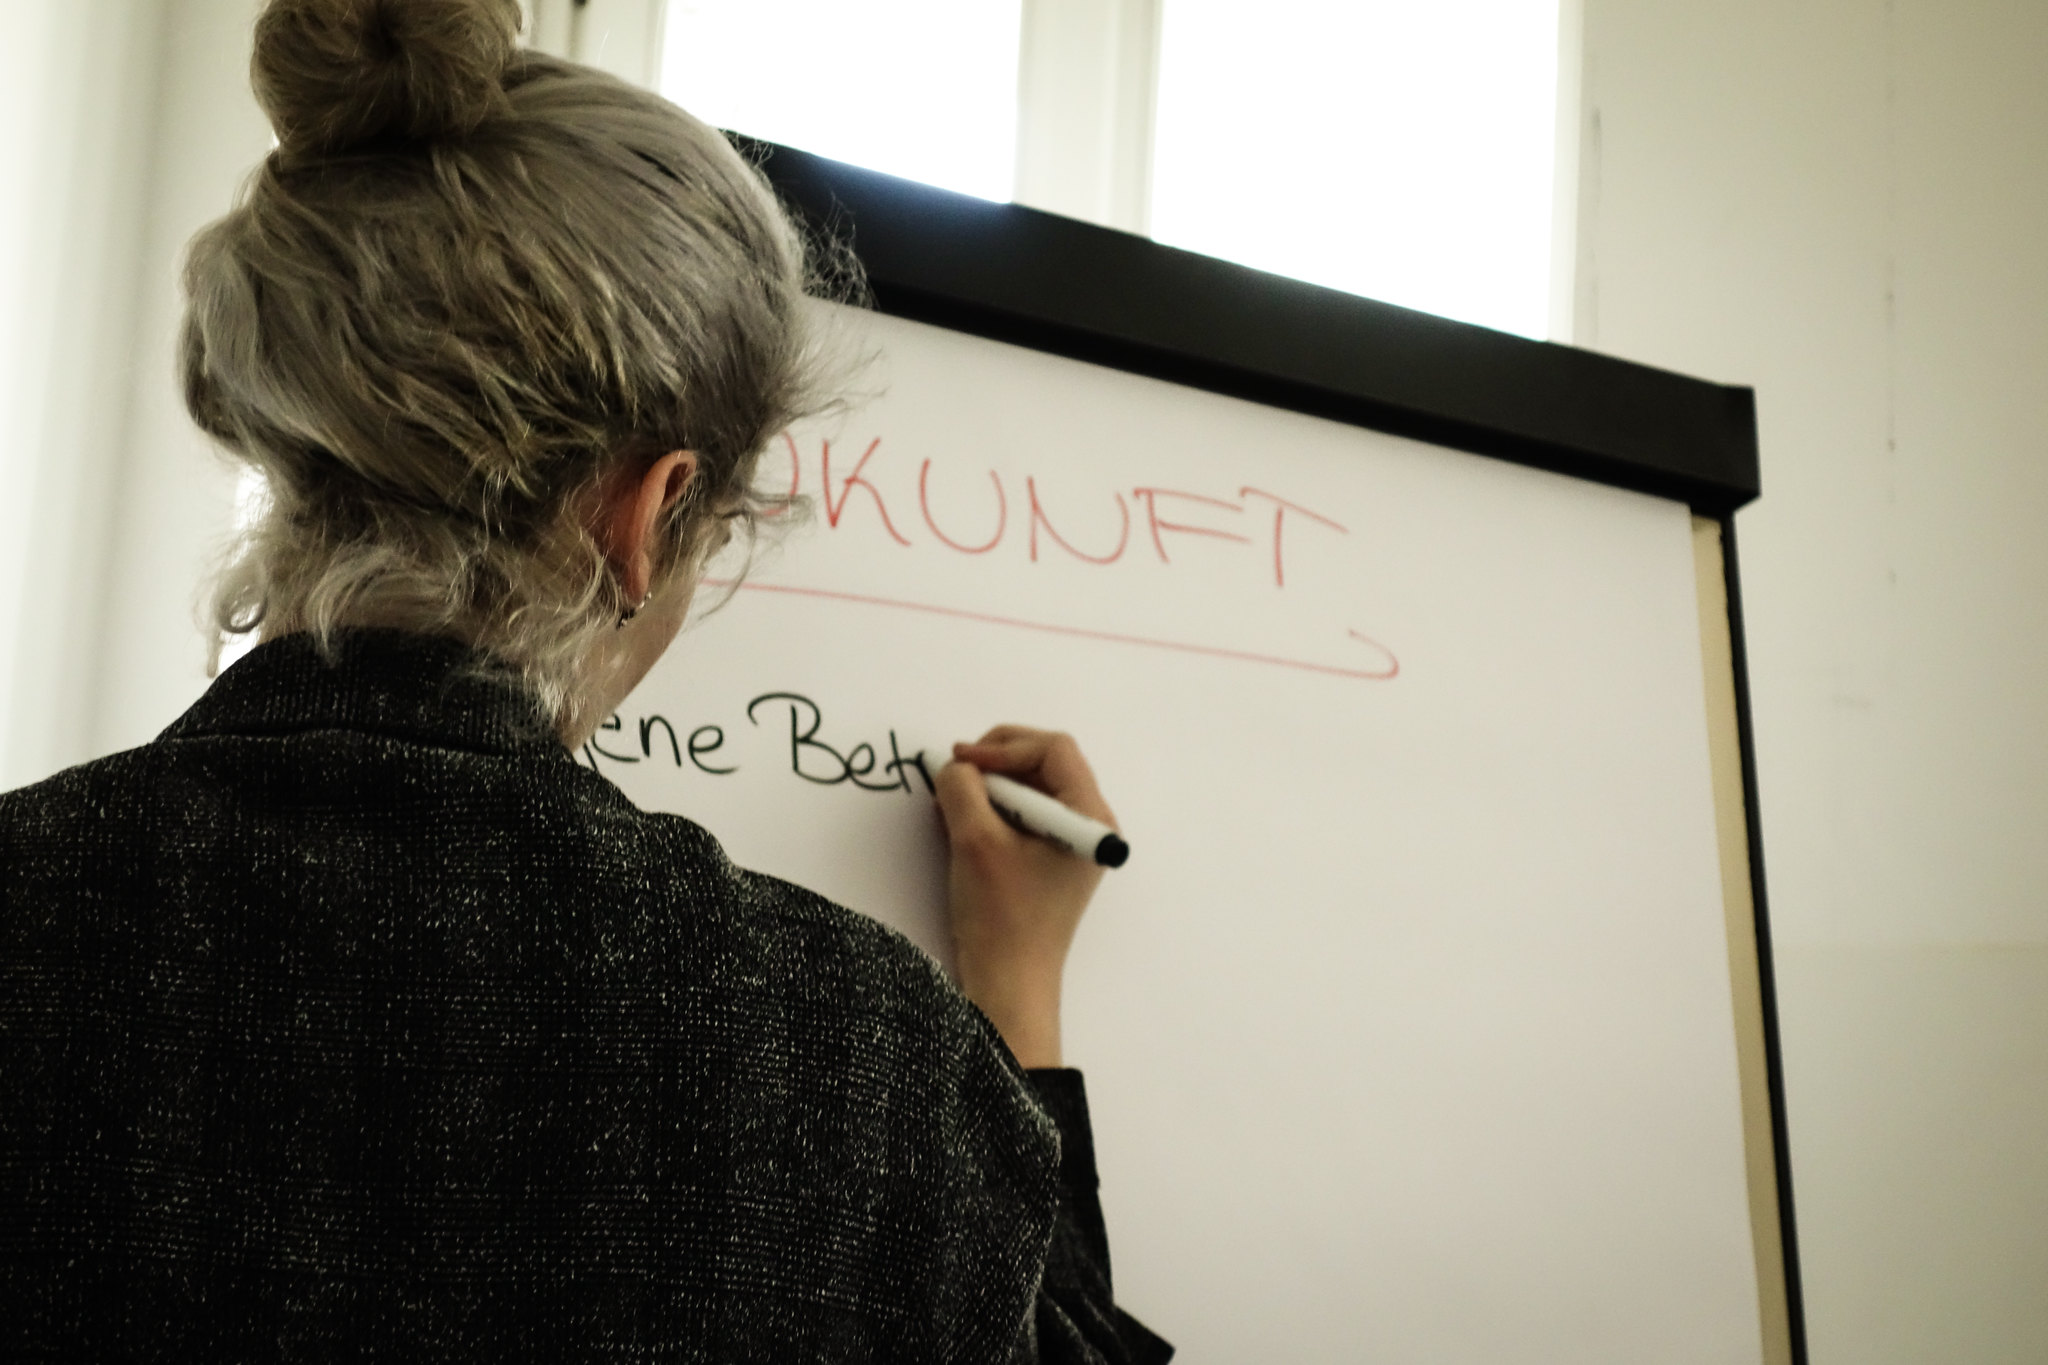 UKUNFT
ene Betr